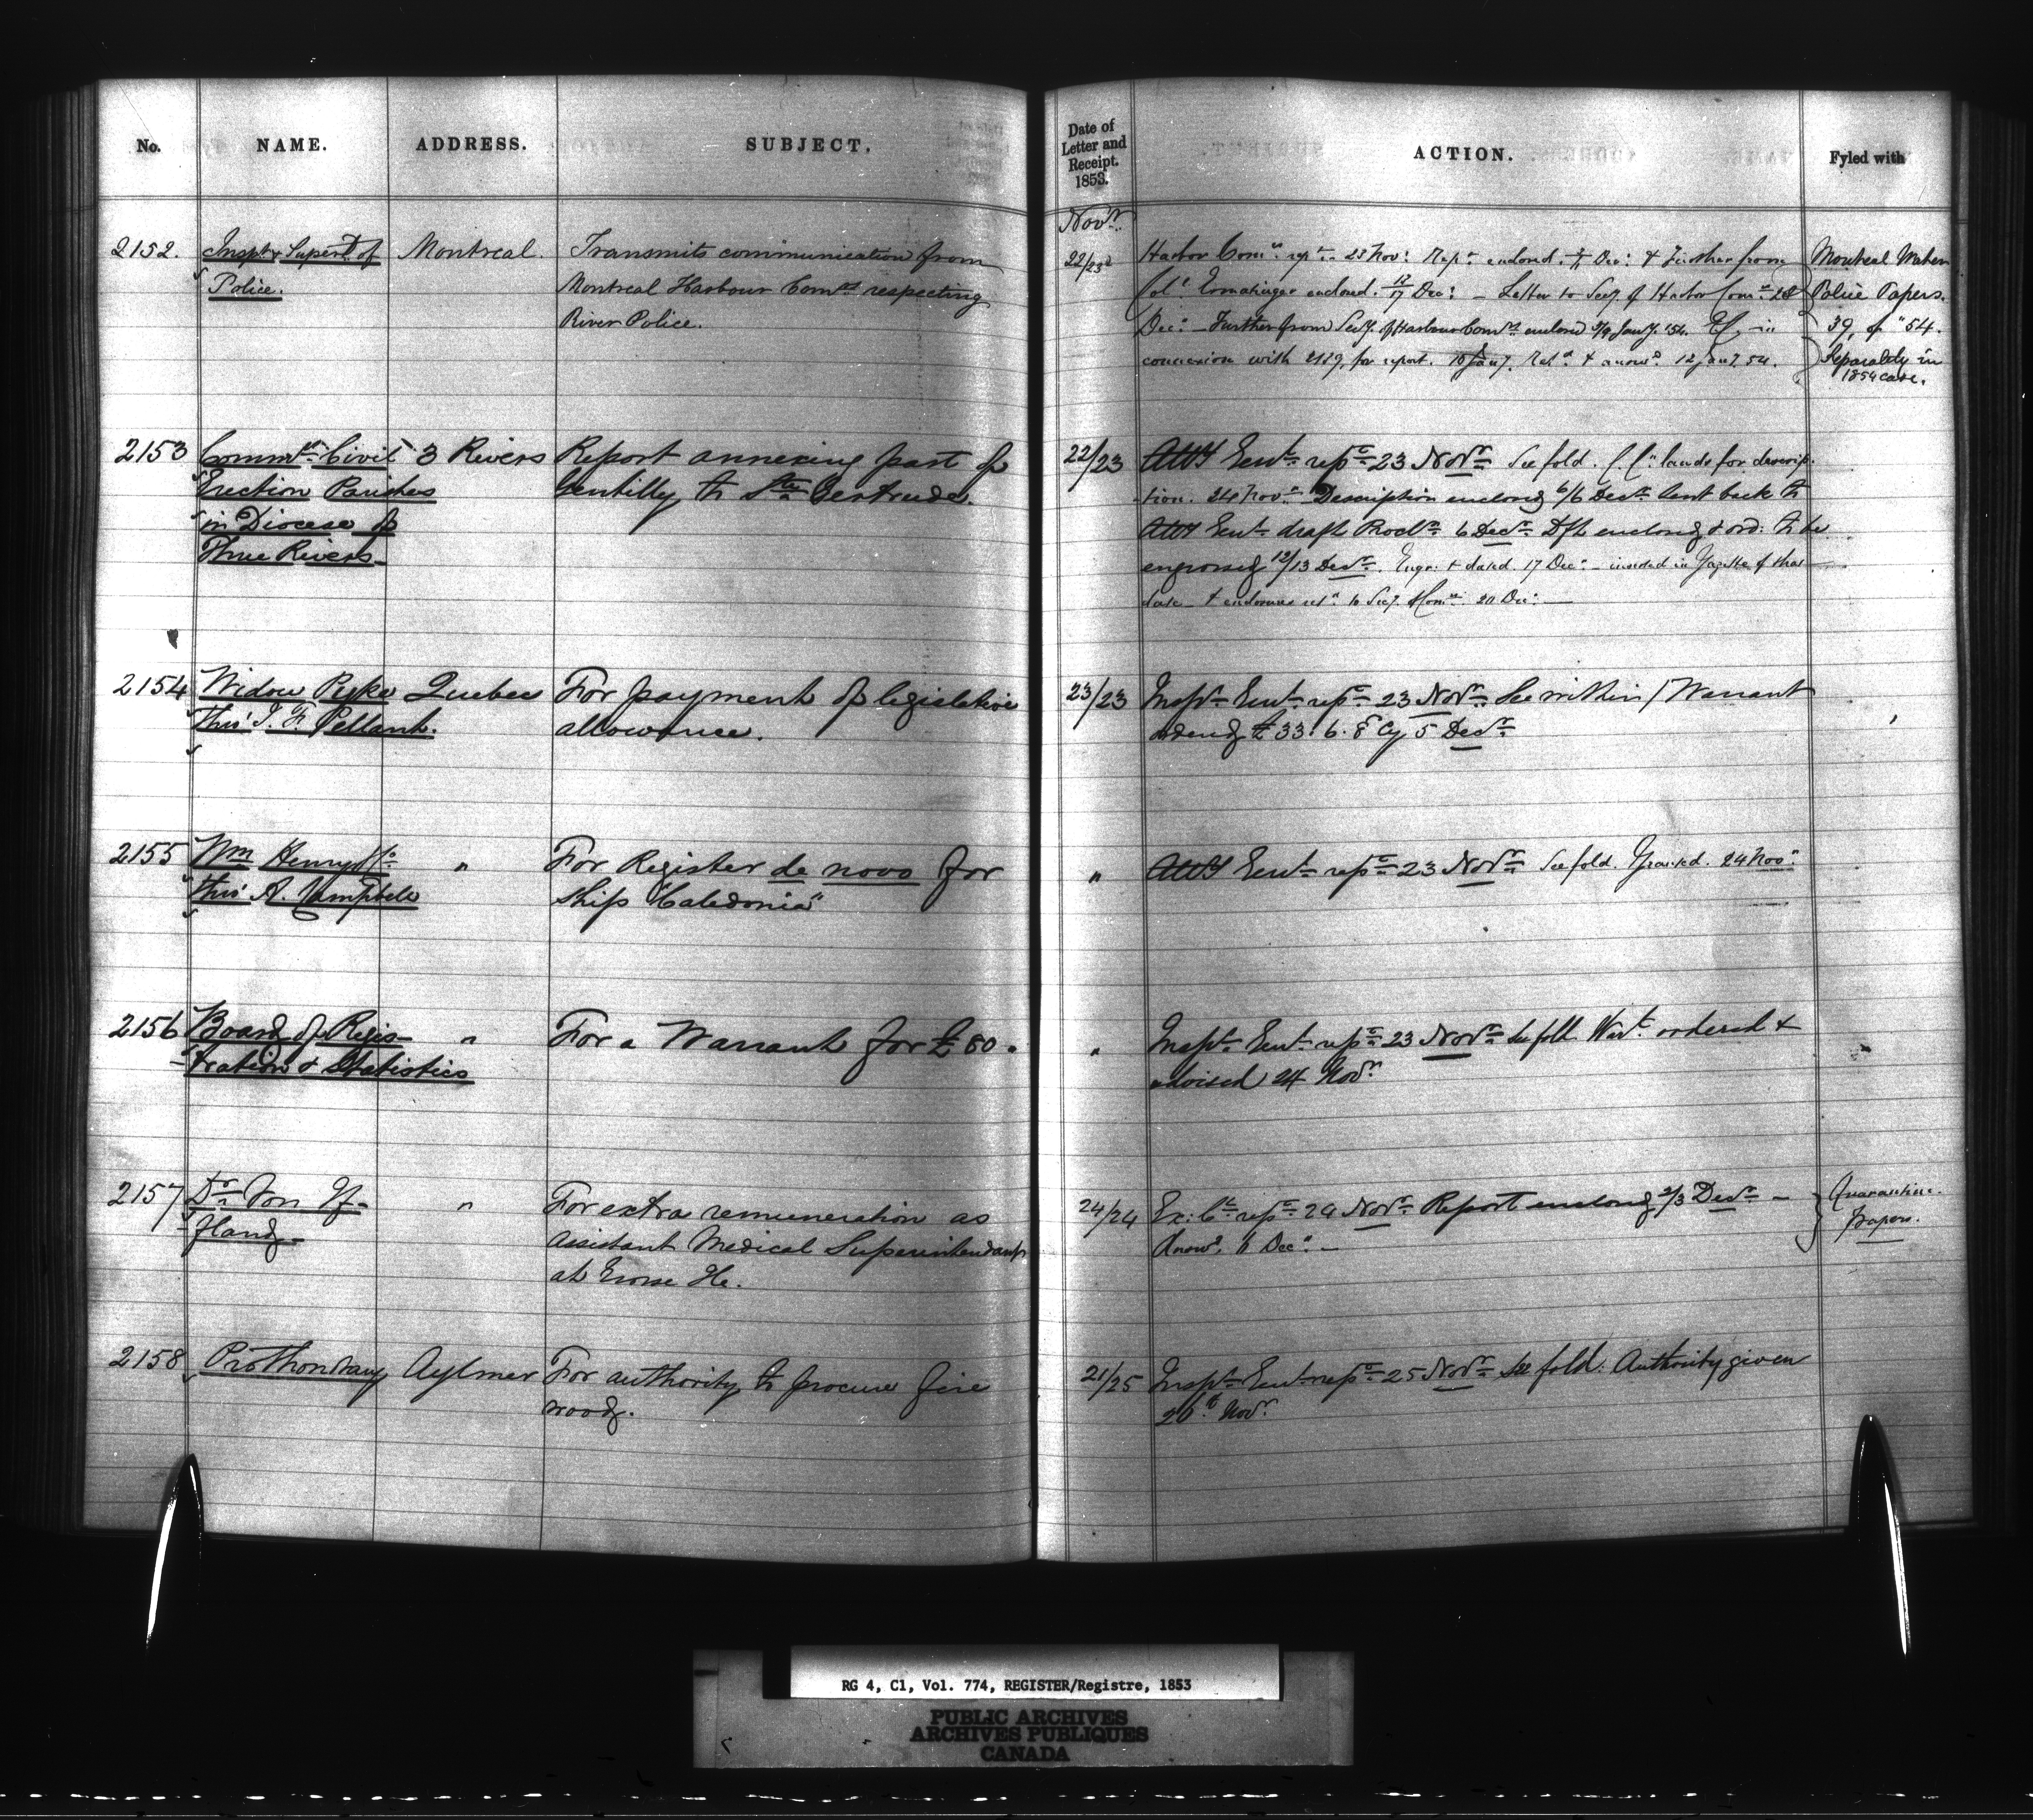 No. NAME. ADDRESS. SUBJECT.
2152. Inspr & Superdt of Montreal. Transmits communication from
Police. Montreal Harbour Comrs respecting
River Police.
2153 Commrs Civil 3 Rivers Report annexing part of
Erection Parishes Gentilly to Ste Gertrude.
in Diocese of
Three Rivers.
2154 Widow Pyke Quebec For payment of legislative
thro' I. F. Pellant. allowance.
2155 Wm Henry & Co " For Register de novo for
thro' A. Campbell ship "Caledonia"
2156 Board of Regis- " For a Warrant for £80.
tration & Statistics
2157 Dr Von If- " For extra remuneration as
fland Assistant Medical Superintendant
at Grosse Ile.
2158 Prothonotary Aylmer For authority to procure fire
wood.
Date of Letter and Receipt. 1853. ACTION. Fyled with
Novr
22/23d Harbor Comrs 23 Nov: Rept enclosed Dec: & Further from Montreal Water
Col: Ermatinger enclosed 12/17 Dec: - Letter to Secy of Harbor Comrs 28 Police Papers.
Decr - Further from Secy of Harbour Comrs enclosed Jany '54. in 39, of "54.
connexion with 2129, for report. 10 Jany. 12 Jany 54. Separately in
1854 case.
22/23 Atty Genl refd 23 Novr See fold. C. C. lands for descrip-
tion. 24 Novr Description enclosed 6/6 Decr Sent back to
Atty Genl draft Procln 6 Decr Dft enclosed & ord: to be
engrossed 12/13 Decr. Engr: & dated 17 Dec: - inserted in Gazette of that
date - & to Secy 20 Dec: -
23/23 Inspr Genl refd 23 Novr See within / Warrant
ordered £33. 6. 8 Cy 5 Decr
" Atty Genl refd 23 Novr See fold. Granted. 24 Novr
" Inspr Genl refd 23 Novr See fold. Wart ordered &
advised 24 Novr
24/24 Ex: Cl refd 24 Novr Report enclosed 2/3 Decr - Quarantine
Answd 6 Decr - Papers.
21/25 Inspr Genl refd 25 Novr See fold. Authority given
26th Novr
RG 4, C1, Vol. 774, REGISTER/Registre, 1853
PUBLIC ARCHIVES
ARCHIVES PUBLIQUES
CANADA